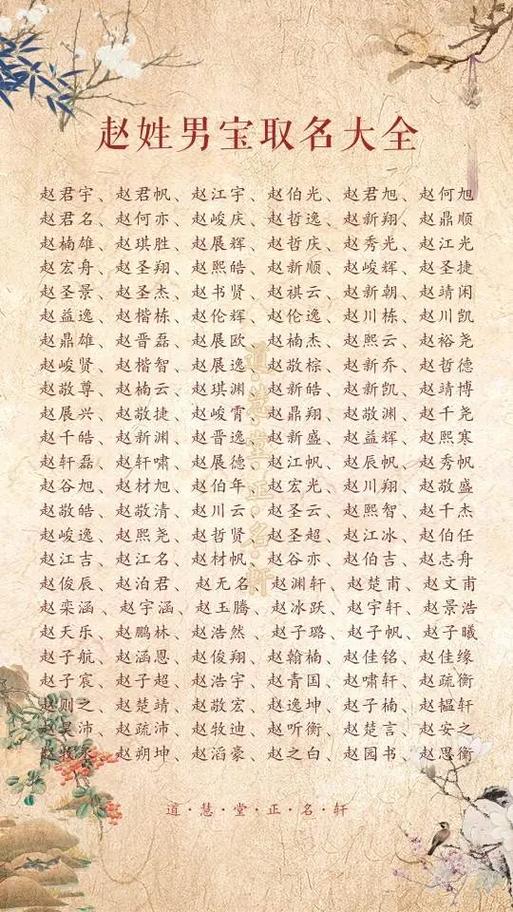 赵姓男宝取名大全
赵君宇、赵君帆、赵江宇、赵伯光、赵君旭、赵何旭
赵君名、赵何亦、赵峻庆、赵哲逸、赵新翔、赵鼎顺
赵楠雄、赵琪胜、赵展辉、赵哲庆、赵秀光、赵江光
赵宏舟、赵圣翔、赵熙皓、赵新顺、赵峻辉、赵圣捷
赵圣景、赵圣杰、赵书贤、赵祺云、赵新朝、赵靖闲
赵益逸、赵楷栋、赵伦辉、赵伦逸、赵川栋、赵川凯
赵鼎雄、赵晋磊、赵展欧、赵楠杰、赵熙云、赵裕尧
赵峻贤、赵楷智、赵展逸、赵敬棕、赵新乔、赵哲德
赵敬尊、赵楠云、赵琪渊、赵新皓、赵新凯、赵靖博
赵展兴、赵敬捷、赵峻霄、赵鼎翔、赵敬渊、赵千尧
赵千皓、赵新渊、赵晋逸、赵新盛、赵益辉、赵熙寒
赵轩磊、赵轩啸、赵展德、赵江帆、赵辰帆、赵秀帆
赵谷旭、赵材旭、赵伯年、赵宏光、赵川翔、赵敬盛
赵敬皓、赵敬清、赵川云、赵圣云、赵熙智、赵千杰
赵峻逸、赵熙尧、赵哲贤、赵圣超、赵江冰、赵伯任
赵江吉、赵江名、赵材帆、赵谷亦、赵伯吉、赵志舟
赵俊辰、赵泊君、赵无名、赵渊轩、赵楚甫、赵文甫
赵栾涵、赵宇涵、赵玉腾、赵冰跃、赵宇轩、赵景浩
赵天乐、赵鹏林、赵浩然、赵子璐、赵子帆、赵子曦
赵子航、赵涵恩、赵俊翔、赵翰楠、赵佳铭、赵佳缘
赵子宸、赵子超、赵浩宇、赵青国、赵啸轩、赵疏衡
赵则之、赵楚靖、赵敬宏、赵逸坤、赵子楠、赵韫轩
赵昊沛、赵疏沛、赵牧迪、赵听衡、赵楚言、赵安之
赵牧、赵朔坤、赵滔豪、赵之白、赵园书、赵思衡
道·慧·堂·正·名·轩